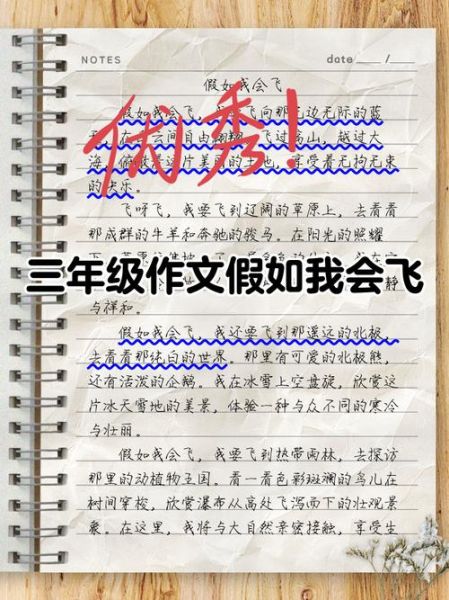 NOTES
date ___/___
假如我会飞
假如我会飞，飞向那无边无际的蓝
在云间自由翱翔，飞过高山，越过大
海，俯瞰这片美丽的土地，享受着无拘无束
的快乐。
优秀！
飞呀飞，我要飞到辽阔的草原上，去看看
那成群的牛羊和奔驰的骏马。在阳光的照耀
三年级作文假如我会飞
静
与祥和。
假如我会飞，我还要飞到那遥远的北极，
去看看那纯白的世界。那里有可爱的北极熊，
还有活泼的企鹅。我在冰雪上空盘旋，欣赏这
片冰天雪地的美景，体验一种与众不同的寒冷
与壮丽。
假如我会飞，我要飞到热带雨林，去探访
那里的动植物王国。看一看色彩斑斓的鸟儿在
树间穿梭，欣赏瀑布从高处飞泻而下的壮观景
象。在这里，我将与大自然亲密接触，享受生